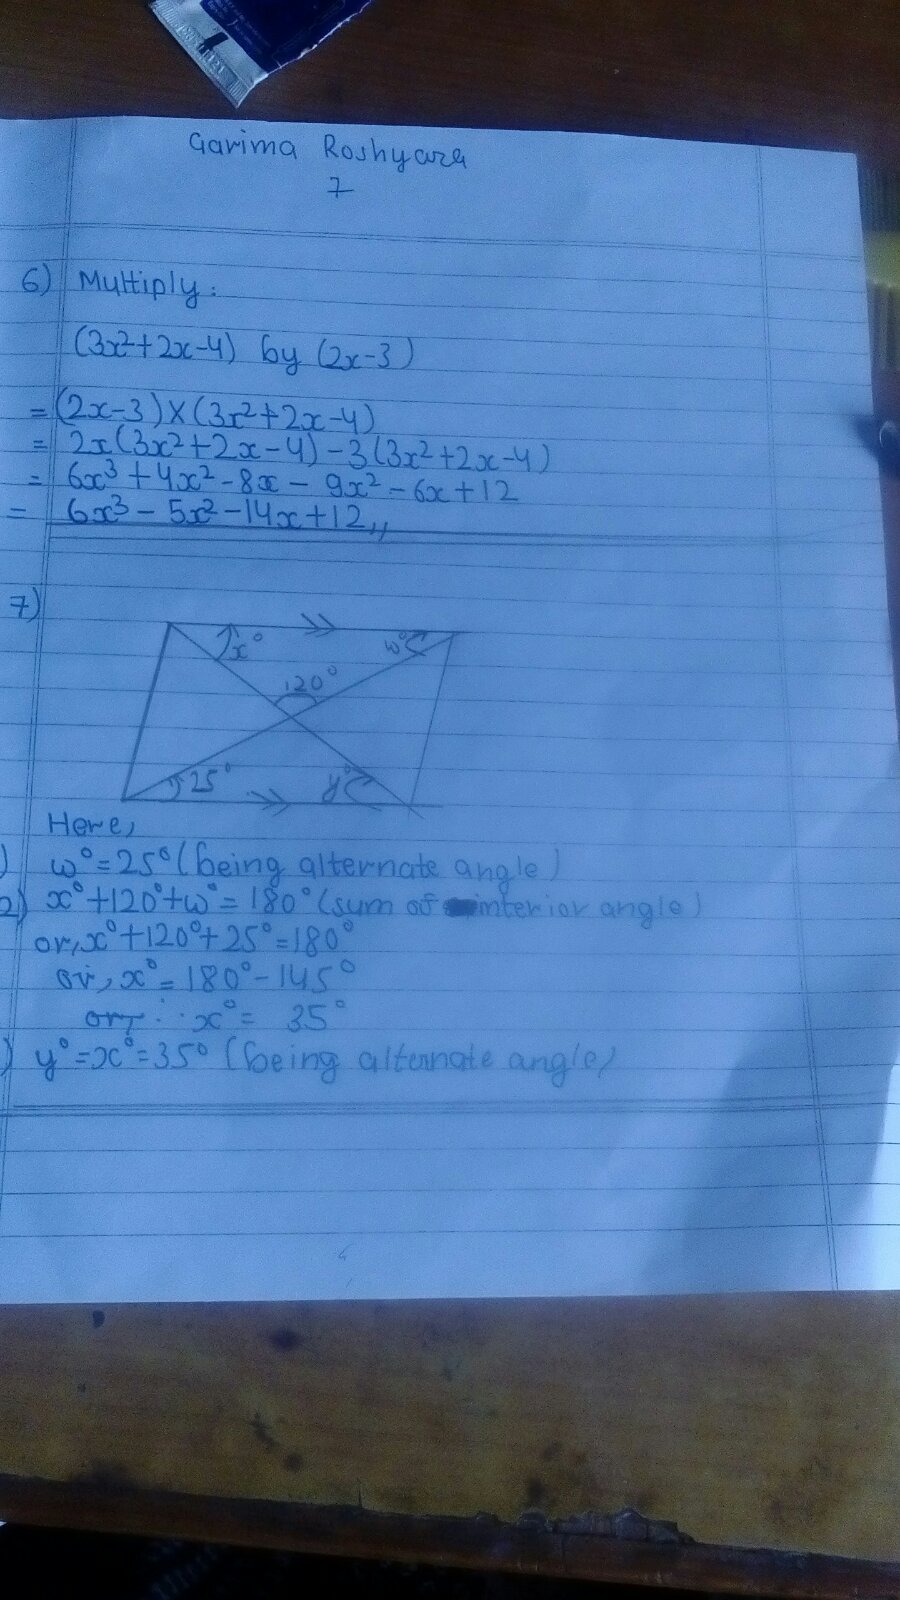 Garima Roshyara
7
6) Multiply:
(3x²+2x-4) by (2x-3)
= (2x-3)×(3x²+2x-4)
= 2x(3x²+2x-4)-3(3x²+2x-4)
= 6x³+4x²-8x-9x²-6x+12
= 6x³-5x²-14x+12,,
7)
x° w°
120°
25° y°
Here,
) w°=25°(being alternate angle)
2) x°+120°+w°=180°(sum of interior angle)
or,x°+120°+25°=180°
or, x°=180°-145°
or, ∴ x°= 35°
) y°=x°=35° (being alternate angle)